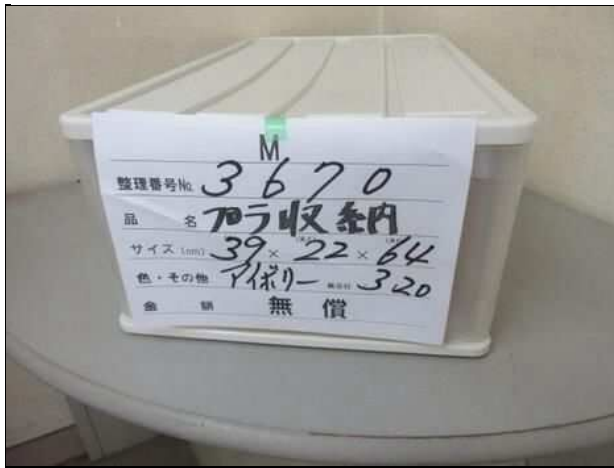 M
整理番号No. 3670
品 名 プラ収納
サイズ(cm) 39 × 22 × 64
色・その他 アイボリー 320
金 額 無 償